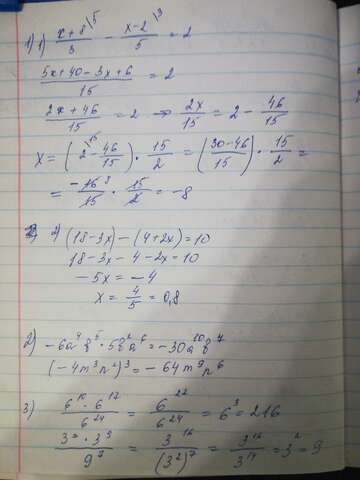 1) 1) (x+8)/3 \5 − (x−2)/5 \3 = 2
(5x+40−3x+6)/15 = 2
(2x+46)/15 = 2 ⇒ 2x/15 = 2 − 46/15
x = (2\15 − 46/15) · 15/2 = ((30−46)/15) · 15/2 =
= −16 8/15 · 15/2 = −8
2) (18−3x)−(4+2x)=10
18−3x−4−2x=10
−5x = −4
x = 4/5 = 0,8
2) −6a⁴b⁵ · 5b²a⁶ = −30a¹⁰b⁷
(−4m³n²)³ = −64m⁹n⁶
3) (6¹⁰ · 6¹²)/6²⁴ = 6²²/6²⁴ = 6³ = 216
(3⁷ · 3⁹)/9⁷ = 3¹⁶/(3²)⁷ = 3¹⁶/3¹⁴ = 3² = 9